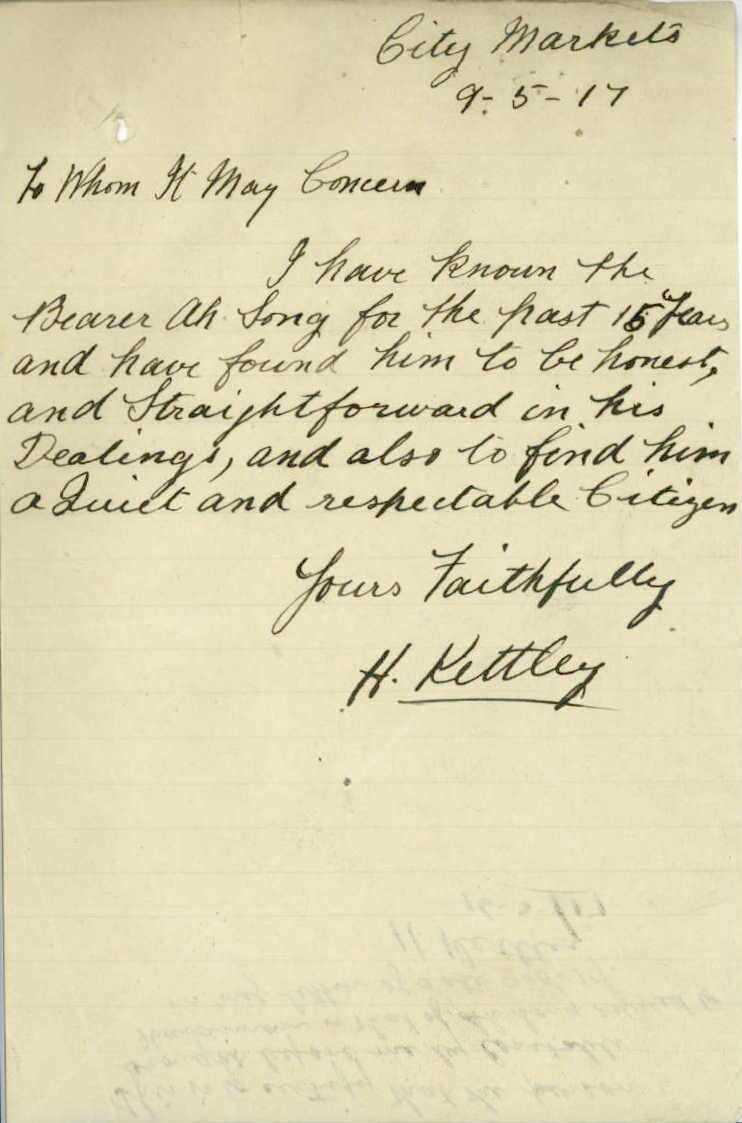 City Markets
9-5-17
To Whom It May Concern
I have known the
Bearer Ah Song for the past 15 Years
and have found him to be honest,
and Straightforward in his
Dealings, and also to find him
a Quiet and respectable Citizen
Yours Faithfully
H. Kettley